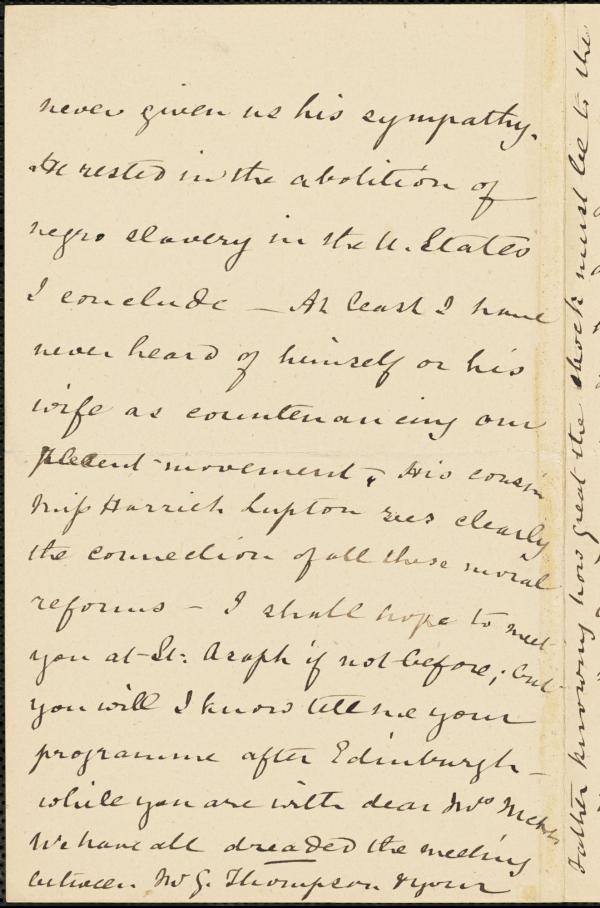 never given us his sympathy.
He rested in the abolition of
negro slavery in the U. States
I conclude — At least I have
never heard of himself or his
wife as countenancing our
present movement. His cousin
Miss Harriet Lupton sees clearly
the connection of all these moral
reforms — I shall hope to meet
you at St: Asaph if not before; but
you will I know tell me your
programme after Edinburgh —
while you are with dear Mrs
We have all dreaded the meeting
between Mr G. Thompson & your
Father knowing how great the shock must be to the